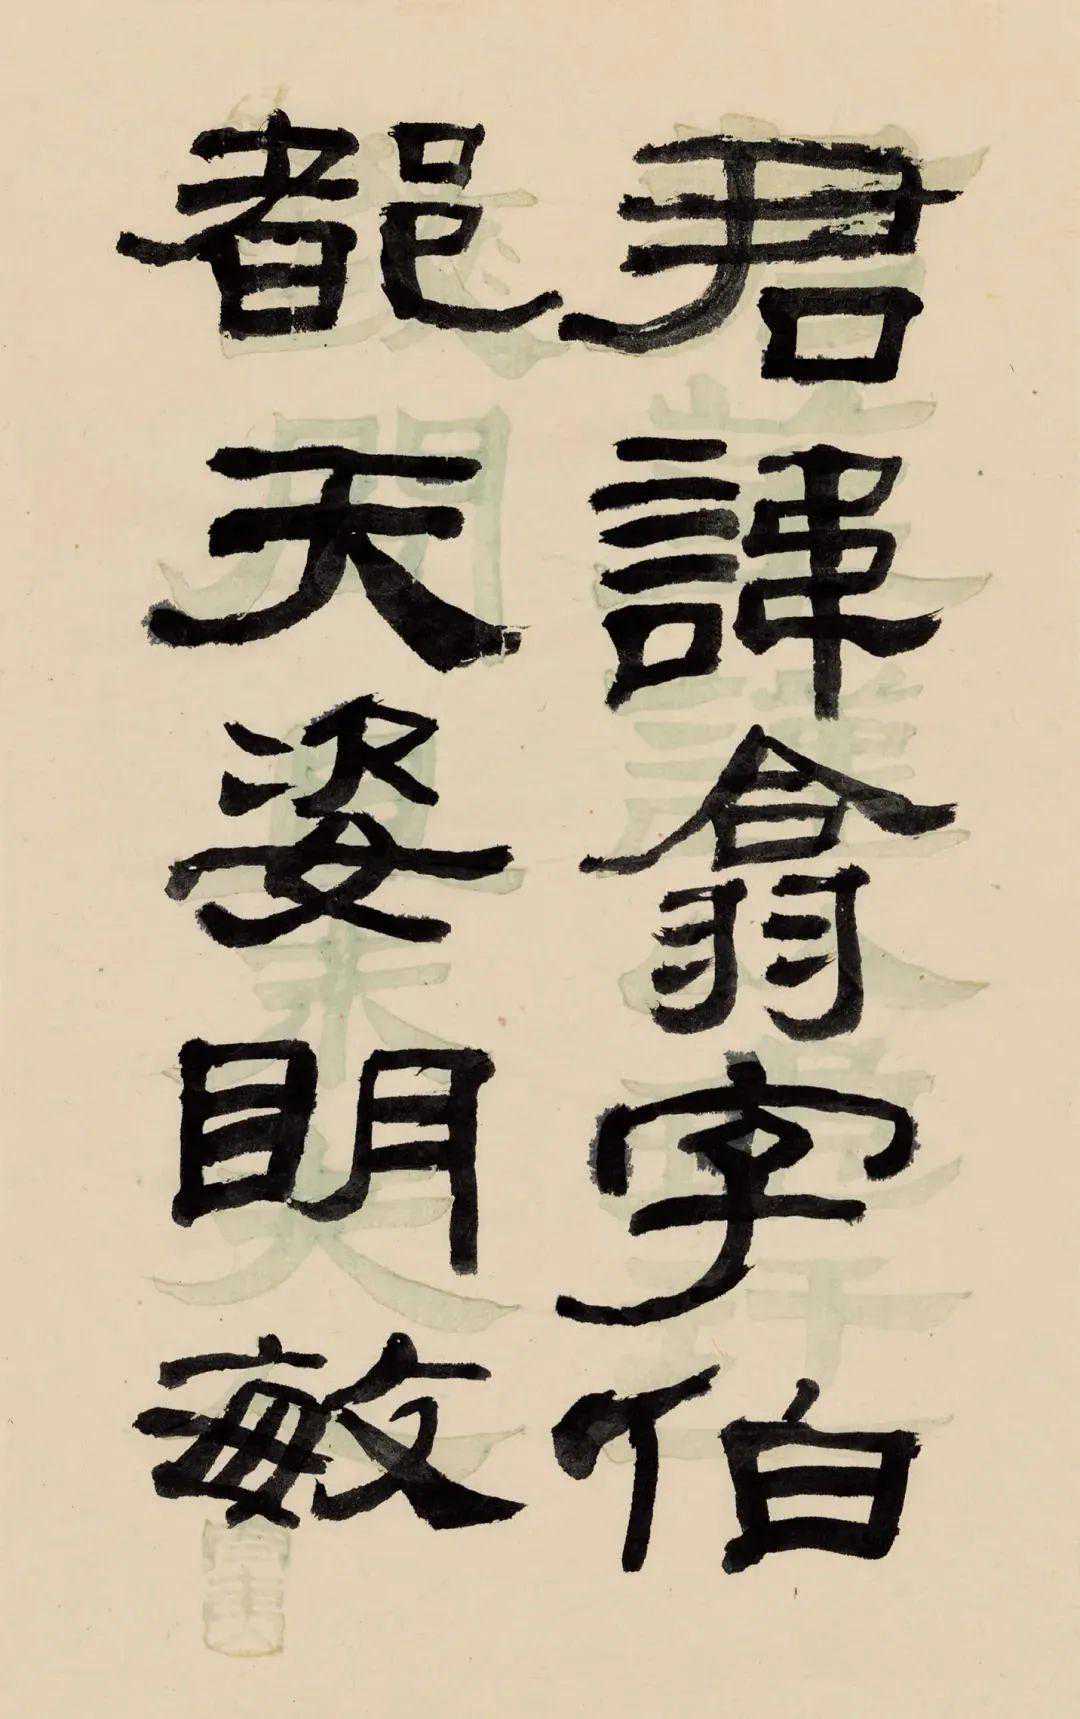 君諱翕字伯
都天姿明敏